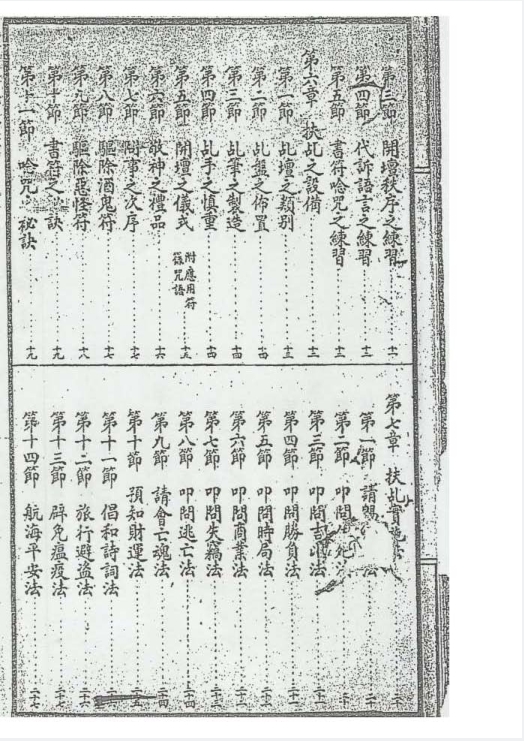 第三節 開壇秩序之練習 十一
第四節 代訴語言之練習 十二
第五節 書符唸咒之練習 十二
第六章 扶乩之設備 十三
第一節 乩壇之類別 十三
第二節 乩盤之佈置 十四
第三節 乩筆之製造 十四
第四節 乩手之慎重 十四
第五節 開壇之儀式 附應用符籙咒語 十五
第六節 敬神之禮品 十六
第七節 問事之次序 十七
第八節 驅除酒鬼符 十七
第九節 驅除惡怪符 十八
第十節 書符之秘訣 十九
第十一節 唸咒之秘訣 十九
第七章 扶乩實施法 二十
第一節 請 法 二十
第二節 叩問 二十
第三節 叩問吉凶法 二十一
第四節 叩問勝負法
第五節 叩問時局法
第六節 叩問商業法
第七節 叩問失竊法
第八節 叩問逃亡法 二十四
第九節 請會亡魂法 二十四
第十節 預知財運法 二十五
第十一節 倡和詩詞法
第十二節 旅行避盜法 二十六
第十三節 辟免瘟疫法 二十七
第十四節 航海平安法 二十七